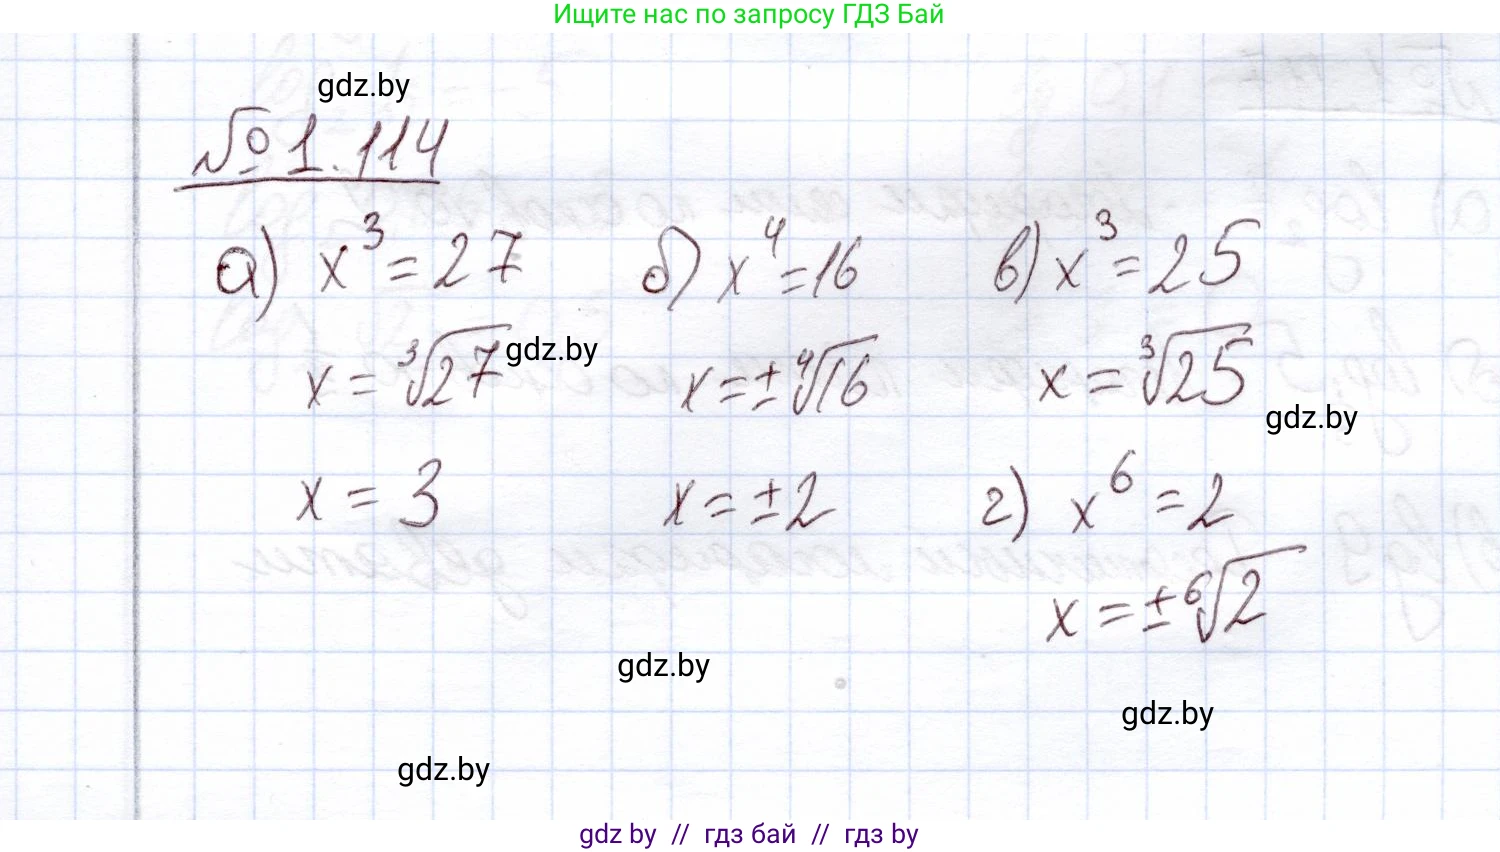 Ищите нас по запросу ГДЗ Бай
gdz.by
№ 1.114
а) x³ = 27
x = ³√27
gdz.by
x = 3
б) x⁴ = 16
x = ± ⁴√16
x = ± 2
в) x³ = 25
x = ³√25
gdz.by
г) x⁶ = 2
x = ± ⁶√2
gdz.by
gdz.by
gdz.by
gdz by // гдз бай // гдз by